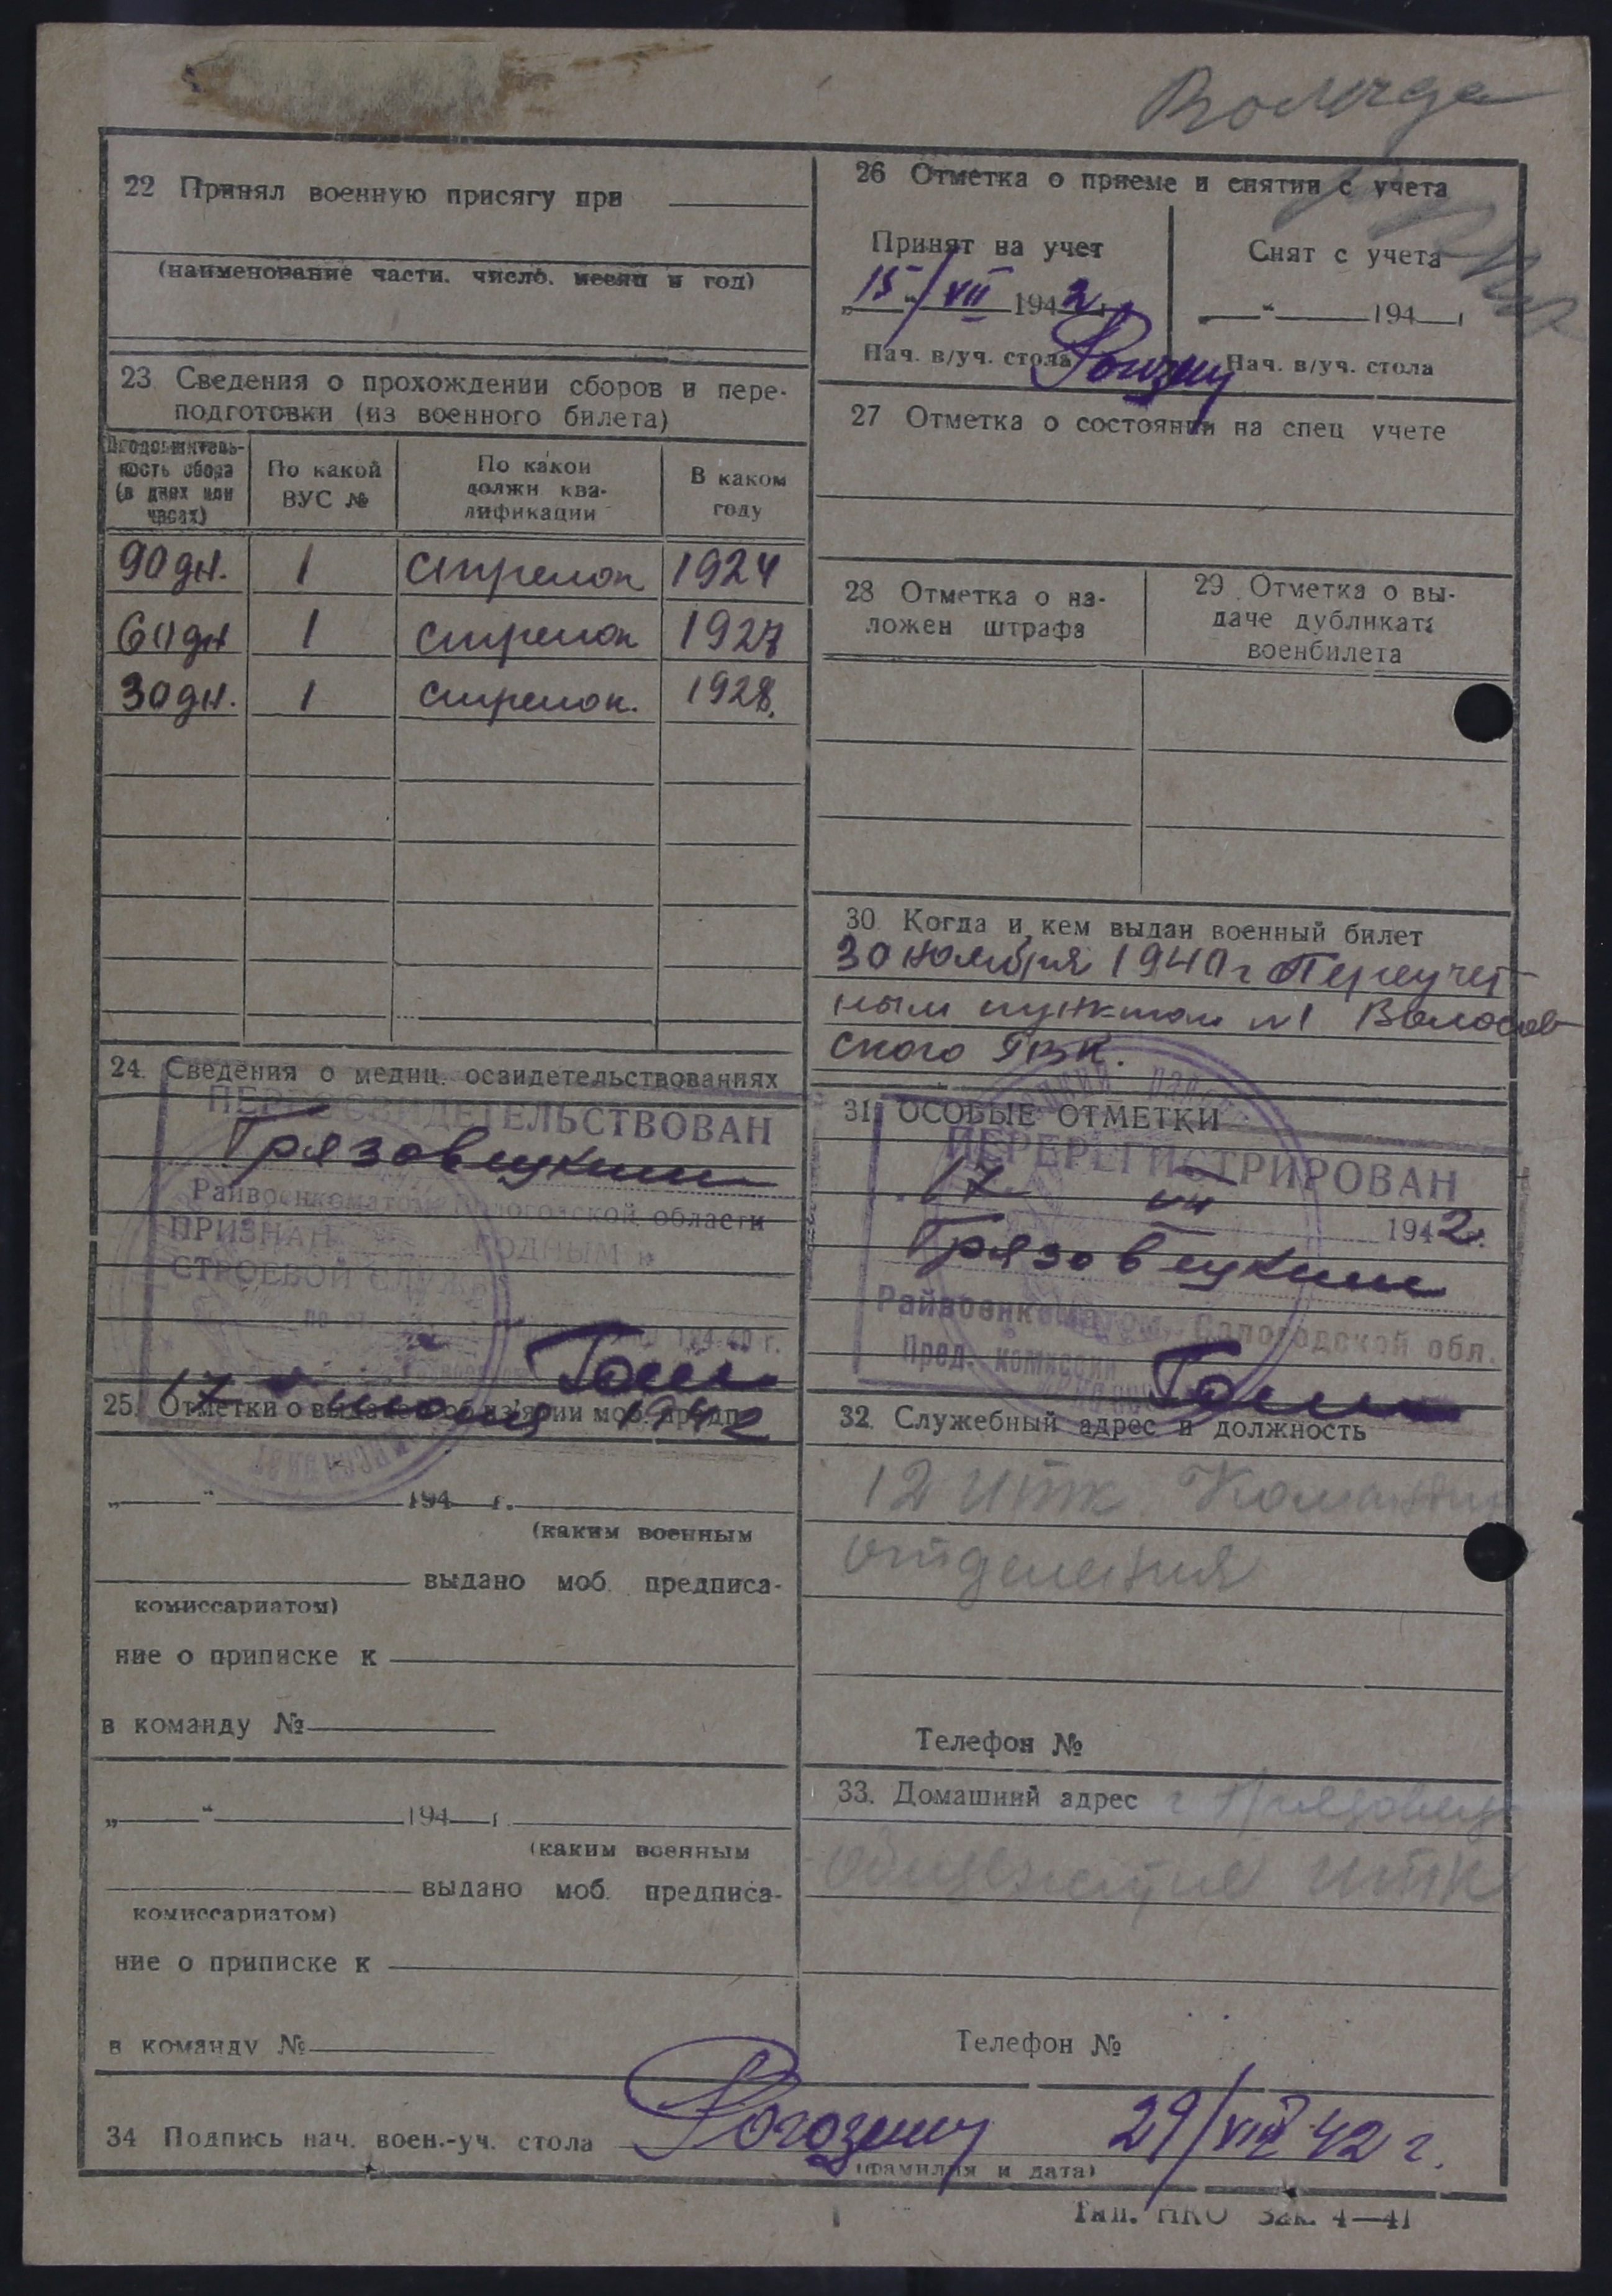 Вологда
22 Принял военную присягу при
(наименование части. число. месяц и год)
23 Сведения о прохождении сборов и пере-
подготовки (из военного билета)
Продолжитель-
ность сбора
(в днях или
часах)
По какой
ВУС №
По какои
должн ква-
лификации
В каком
году
90 дн. 1 стрелок 1924
60 дн 1 стрелок 1927
30 дн. 1 стрелок. 1928.
24. Сведения о медиц. освидетельствованиях
ПЕРЕОСВИДЕТЕЛЬСТВОВАН
Грязовецким
Райвоенкоматом Вологодской области
ПРИЗНАН ГОДНЫМ к
СТРОЕВОЙ СЛУЖБЕ
17 июля 1942
25. Отметки о выдаче и об из'ятии моб. предп.
„ “ 194 г.
(каким военным
выдано моб. предписа-
комиссариатом)
ние о приписке к
в команду №
„ “ 194 г.
(каким военным
выдано моб. предписа-
комиссариатом)
ние о приписке к
в команду №
26 Отметка о приеме и снятии с учета
Принят на учет
„15“/VII 1942 г
Нач. в/уч. стола
Снят с учета
„ “ 194 г
Нач. в/уч. стола
27 Отметка о состоянии на спец учете
28 Отметка о на-
ложен штрафа
29 Отметка о вы-
даче дубликата
военбилета
30 Когда и кем выдан военный билет
30 ноября 1940 г Переучет
ным пунктом №1 Волосов
ского РВК.
31. ОСОБЫЕ ОТМЕТКИ
ПЕРЕРЕГИСТРИРОВАН
17 VII 1942 г.
Грязовецким
Райвоенкоматом, Вологодской обл.
Пред. комиссии
32. Служебный адрес и должность
12 ИТК Командир
отделения
Телефон №
33. Домашний адрес г Грязовец
общежитие ИТК
Телефон №
34 Подпись нач. воен.-уч. стола Рогозин 29/VIII 42 г.
(фамилия и дата)
Тип. НКО Зак. 4—41